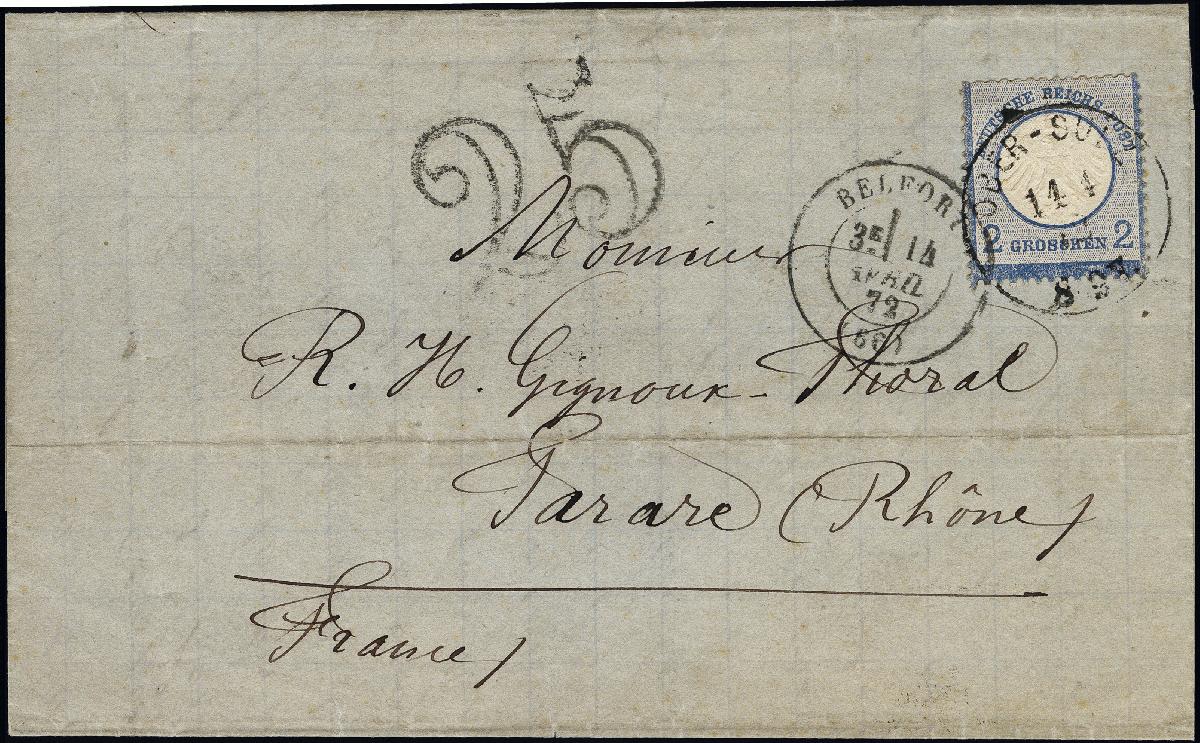 25
DEUTSCHE REICHS-POST
2 GROSCHEN 2
OBER-SU
14 4
BELFORT
3E/ 14
AVRIL
72
(66)
Monsieur
R. H. Gignoux-Thoral
Tarare (Rhône)
France